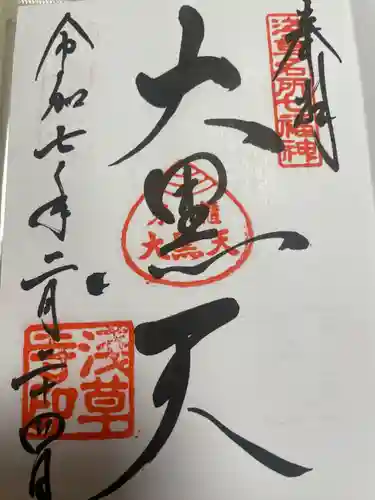 奉拝
浅草名所七福神
大黒天
大黒天
令和七年二月二十四日
浅草寺印